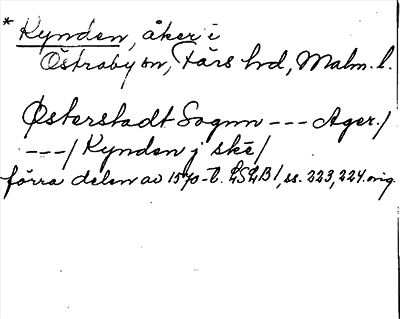 * Kynden, åker i
Östraby sn, Färs hd, Malm. l.
Østerstadt Sogun --- Ager./
---/ Kynden j ske/
förra delen av 1570-t. LSLB1, ss. 223, 224. orig.